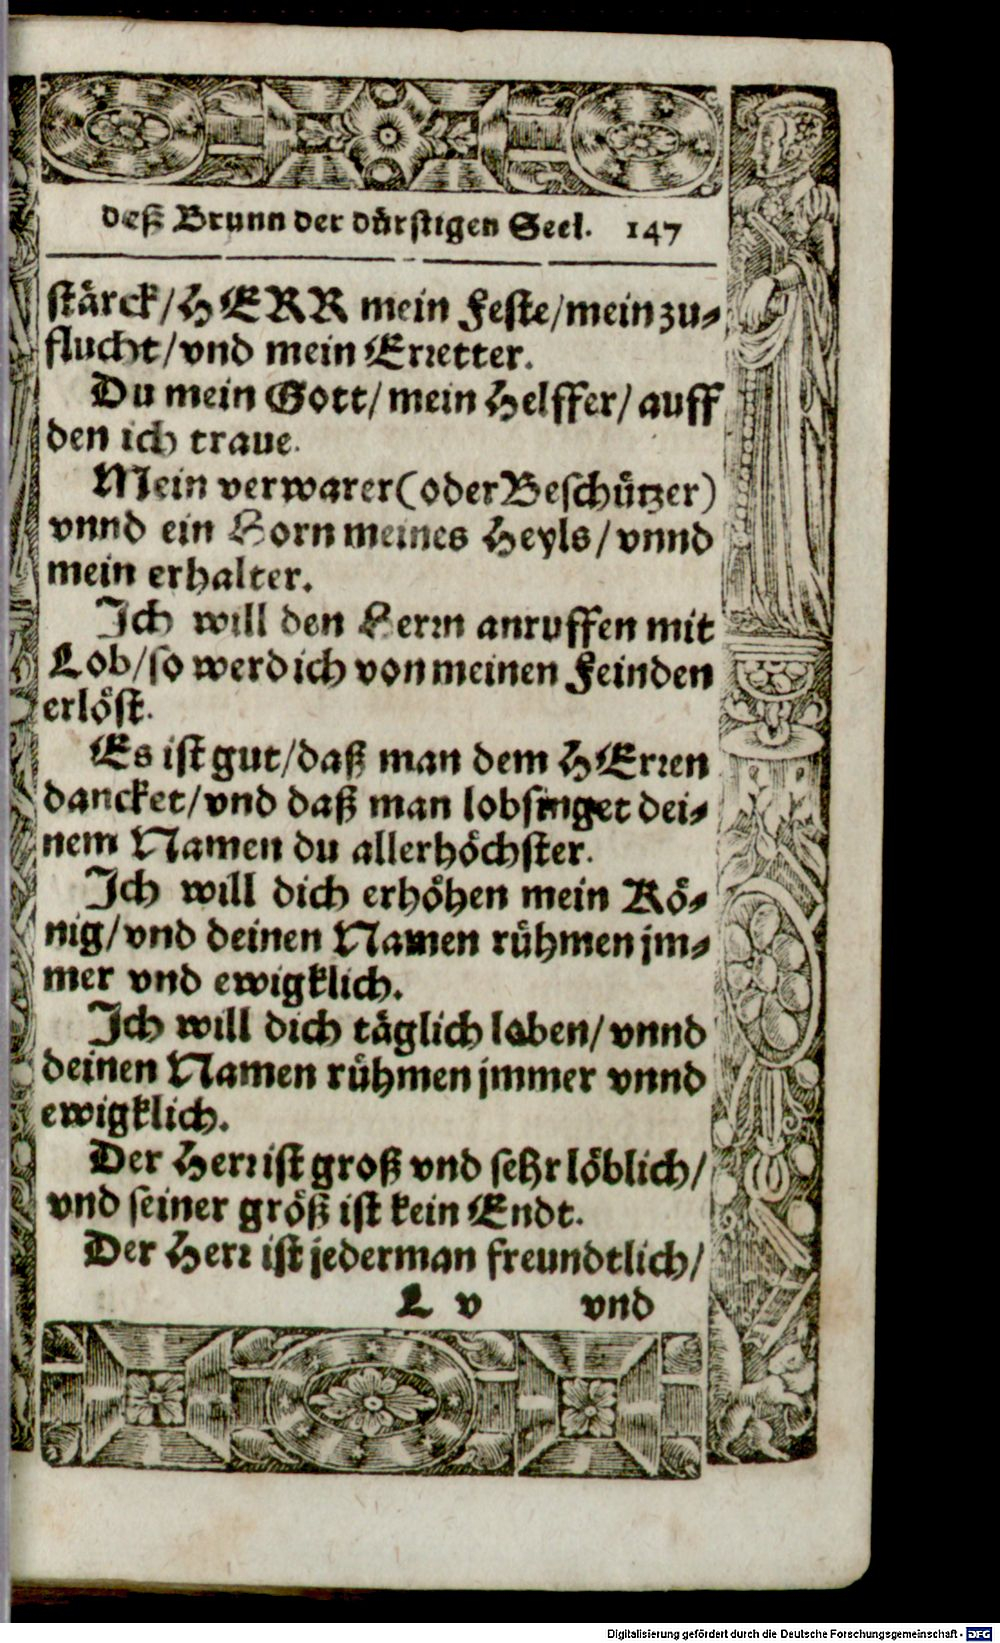 deß Brunn der dürstigen Seel. 147
stärck/HERR mein Feste/mein zu-
flucht/vnd mein Erretter.
Du mein Gott/mein Helffer/auff
den ich traue.
Mein verwarer(oder Beschützer)
vnnd ein Horn meines Heyls/vnnd
mein erhalter.
Ich will den Herrn anruffen mit
Lob/so werd ich von meinen Feinden
erlöst.
Es ist gut/daß man dem HErren
dancket/vnd daß man lobsinget dei-
nem Namen du allerhöchster.
Ich will dich erhöhen mein Kö-
nig/vnd deinen Namen rühmen jm-
mer vnd ewigklich.
Ich will dich täglich loben/vnnd
deinen Namen rühmen jmmer vnnd
ewigklich.
Der Herr ist groß vnd sehr löblich/
vnd seiner größ ist kein Endt.
Der Herr ist jederman freundtlich/
L v vnd
Digitalisierung gefördert durch die Deutsche Forschungsgemeinschaft - DFG